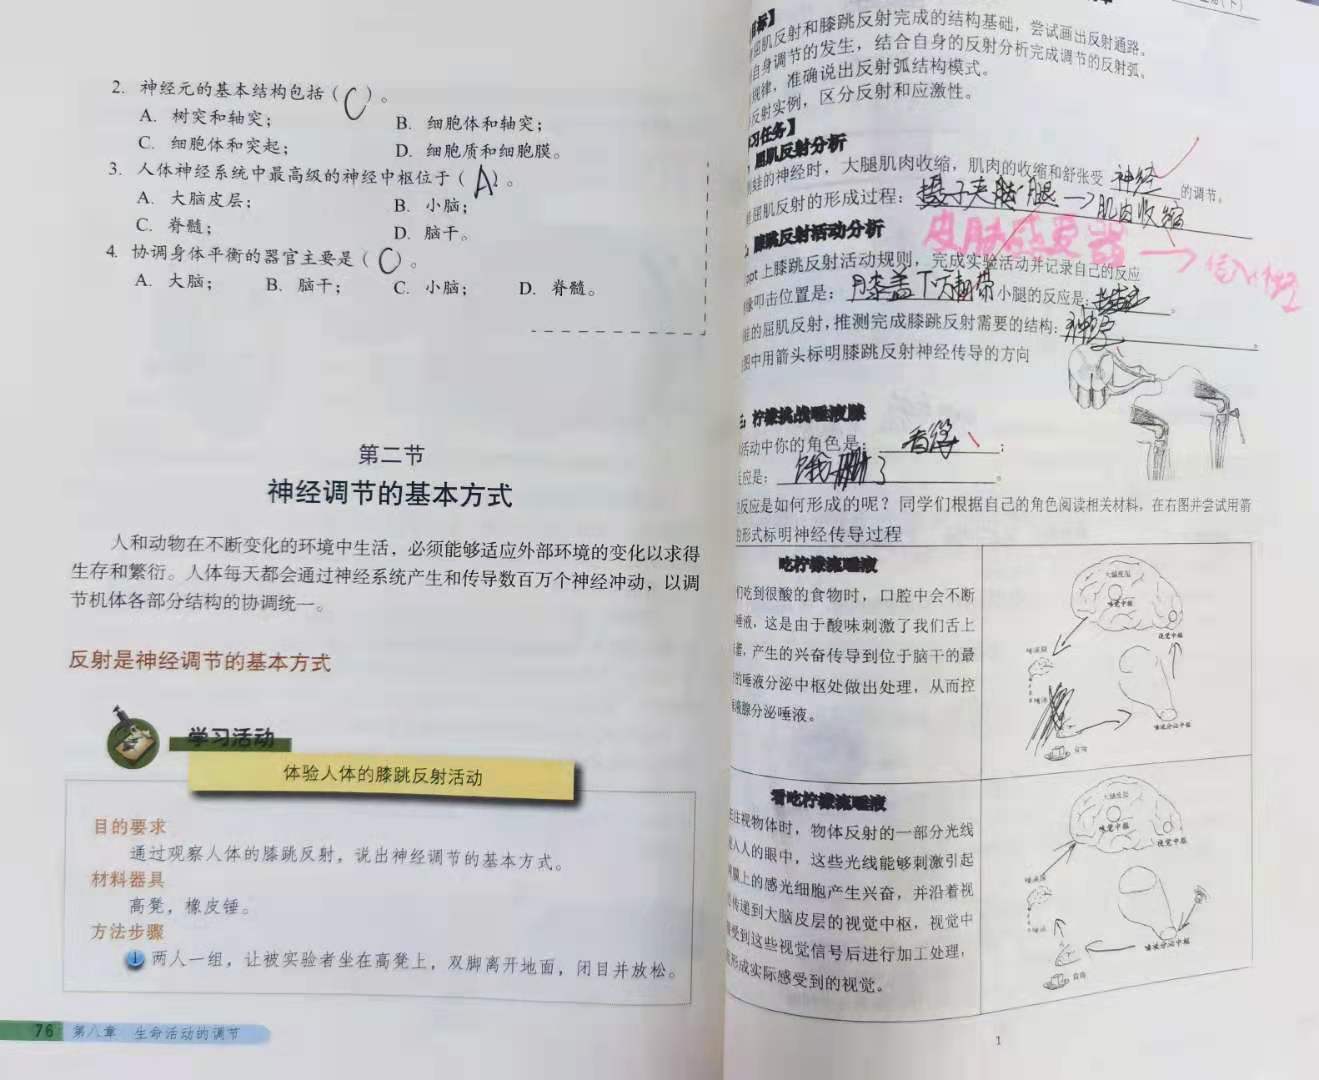 2. 神经元的基本结构包括(C)。
A. 树突和轴突; B. 细胞体和轴突;
C. 细胞体和突起; D. 细胞质和细胞膜。
3. 人体神经系统中最高级的神经中枢位于(A)。
A. 大脑皮层; B. 小脑;
C. 脊髓; D. 脑干。
4. 协调身体平衡的器官主要是(C)。
A. 大脑; B. 脑干; C. 小脑; D. 脊髓。
第二节
神经调节的基本方式
人和动物在不断变化的环境中生活，必须能够适应外部环境的变化以求得
生存和繁衍。人体每天都会通过神经系统产生和传导数百万个神经冲动，以调
节机体各部分结构的协调统一。
反射是神经调节的基本方式
学习活动
体验人体的膝跳反射活动
目的要求
通过观察人体的膝跳反射，说出神经调节的基本方式。
材料器具
高凳，橡皮锤。
方法步骤
1 两人一组，让被实验者坐在高凳上，双脚离开地面，闭目并放松。
76 第八章 生命活动的调节
标】
屈肌反射和膝跳反射完成的结构基础，尝试画出反射通路。
自身调节的发生，结合自身的反射分析完成调节的反射弧、
规律，准确说出反射弧结构模式。
反射实例，区分反射和应激性。
习任务】
屈肌反射分析
蛙的神经时，大腿肌肉收缩，肌肉的收缩和舒张受 神经 的调节。
屈肌反射的形成过程: 镊子夹 腿→肌肉收缩
皮肤感受器→传入神经
膝跳反射活动分析
ppt 上膝跳反射活动规则，完成实验活动并记录自己的反应
叩击位置是: 膝盖下方韧带 小腿的反应是: 。
蛙的屈肌反射，推测完成膝跳反射需要的结构: 神经 。
图中用箭头标明膝跳反射神经传导的方向
三、柠檬挑战唾液腺
活动中你的角色是: ;
反应是: 。
反应是如何形成的呢？同学们根据自己的角色阅读相关材料，在右图并尝试用箭
的形式标明神经传导过程
吃柠檬流唾液
们吃到很酸的食物时，口腔中会不断
唾液，这是由于酸味刺激了我们舌上
蕾，产生的兴奋传导到位于脑干的最
的唾液分泌中枢处做出处理，从而控
唾液腺分泌唾液。
大脑皮层
味觉中枢
视觉中枢
唾液腺
唾液
唾液分泌中枢
食物
看吃柠檬流唾液
在注视物体时，物体反射的一部分光线
入人的眼中，这些光线能够刺激引起
网膜上的感光细胞产生兴奋，并沿着视
传递到大脑皮层的视觉中枢，视觉中
接受到这些视觉信号后进行加工处理，
形成实际感受到的视觉。
大脑皮层
味觉中枢
视觉中枢
唾液腺
唾液
唾液分泌中枢
食物
1